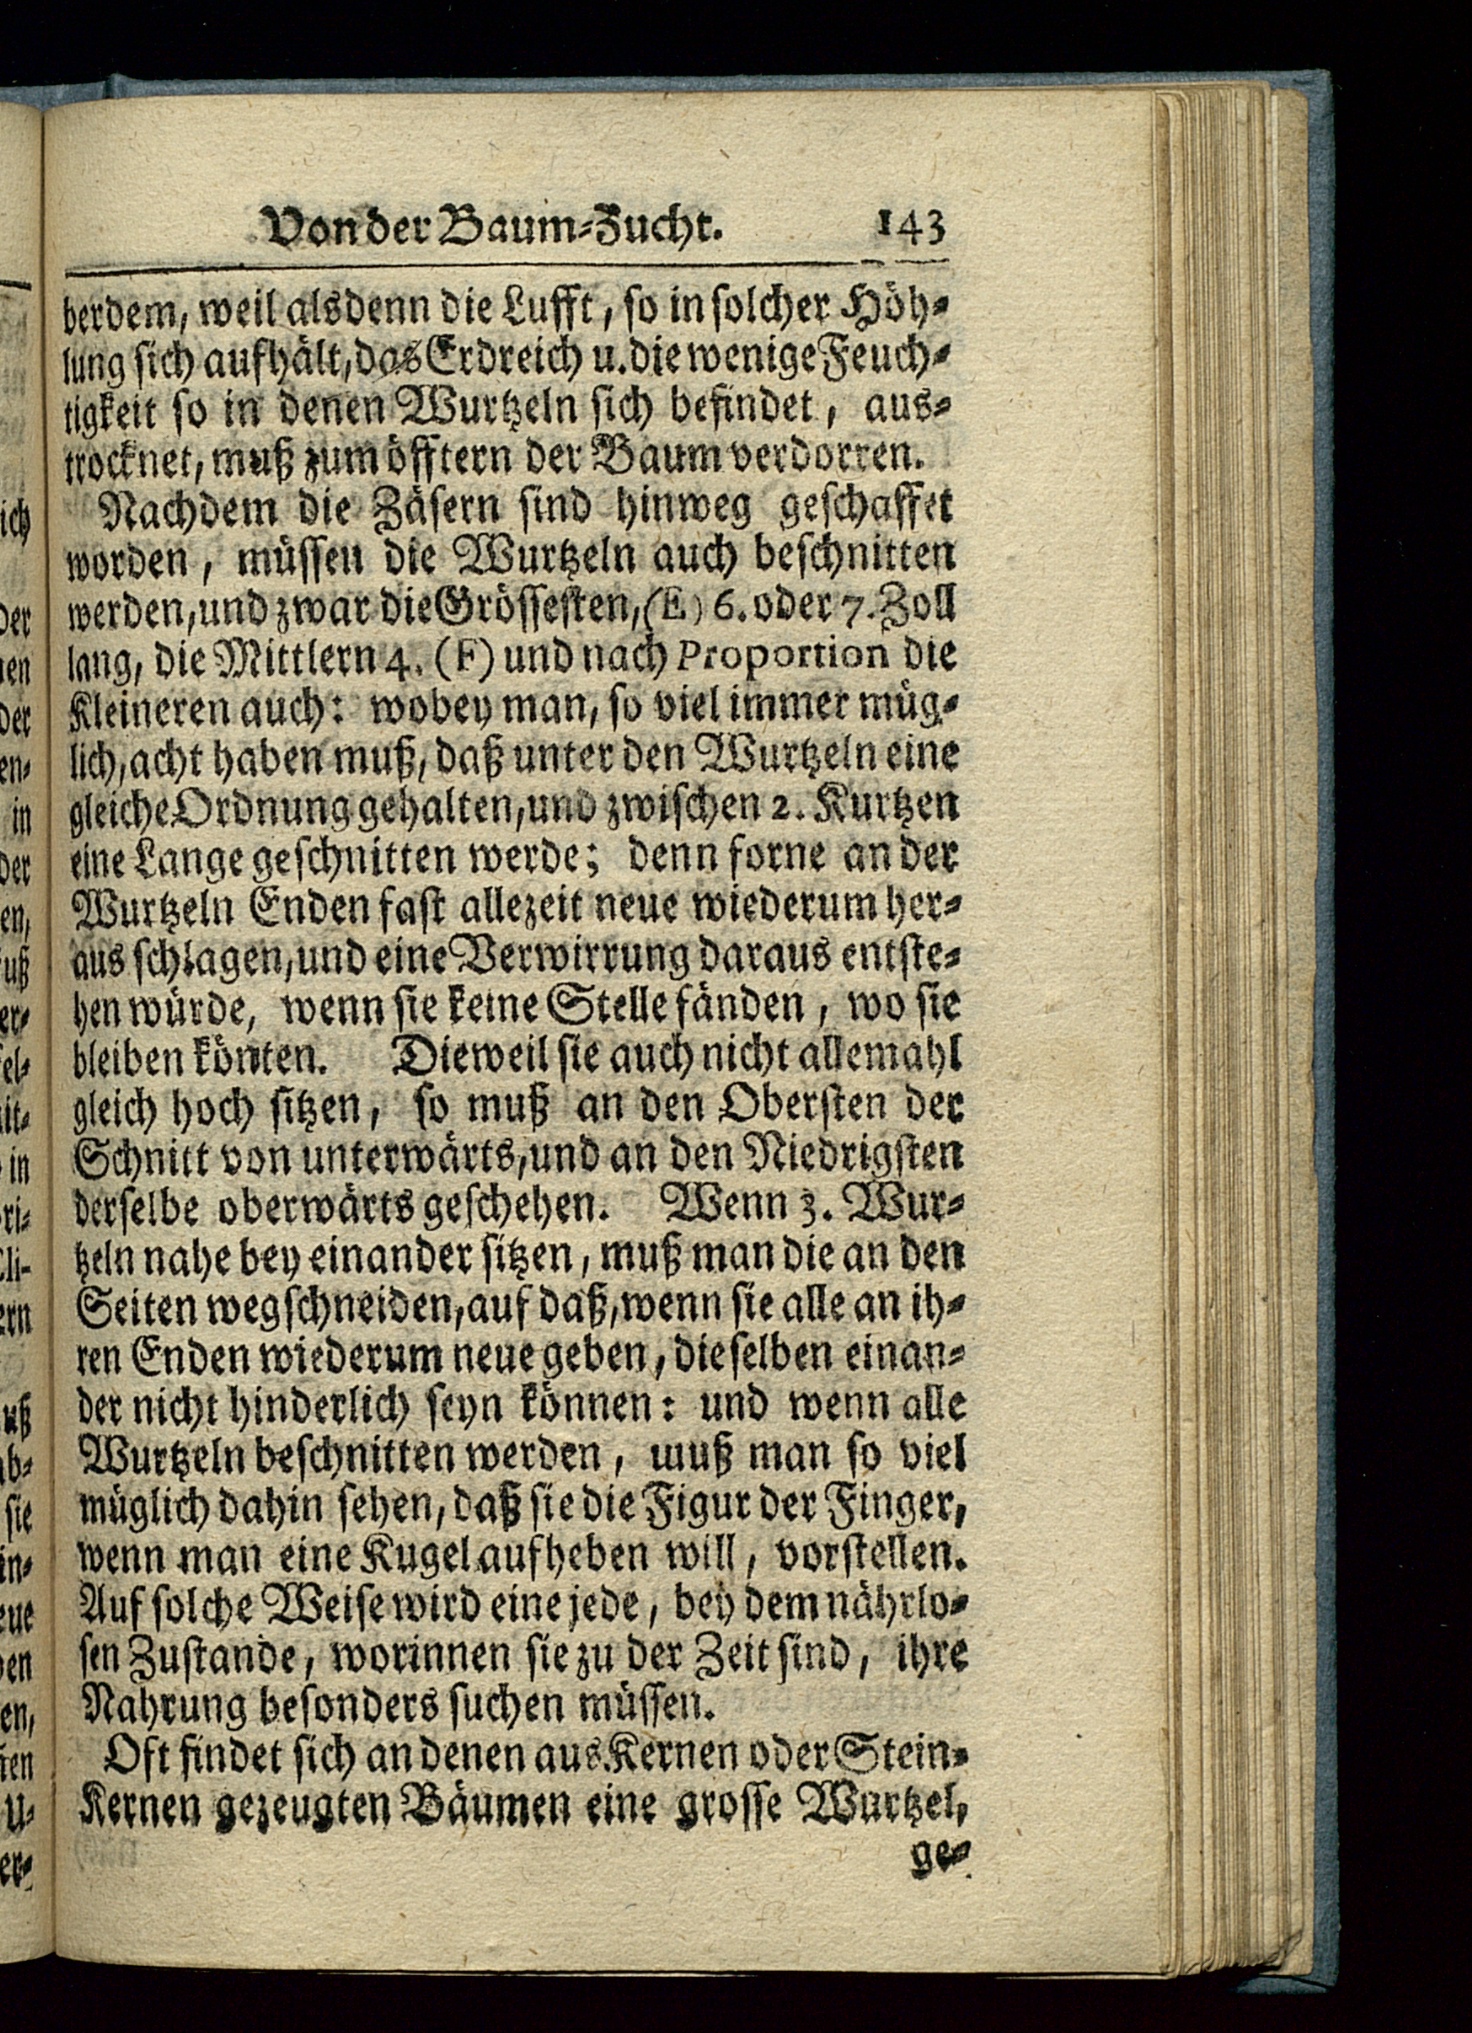 Von der Baum-Zucht. 143
berdem, weil alsdenn die Lufft, so in solcher Höh-
lung sich aufhält, das Erdreich u. die wenige Feuch-
tigkeit so in denen Wurtzeln sich befindet, aus-
trocknet, muß zum öfftern der Baum verdorren.
Nachdem die Zäsern sind hinweg geschaffet
worden, müssen die Wurtzeln auch beschnitten
werden, und zwar die Grössesten, (E) 6. oder 7. Zoll
lang, die Mittlern 4. (F) und nach Proportion die
Kleineren auch: wobey man, so viel immer müg-
lich, acht haben muß, daß unter den Wurtzeln eine
gleiche Ordnung gehalten, und zwischen 2. Kurtzen
eine Lange geschnitten werde; denn forne an der
Wurtzeln Enden fast allezeit neue wiederum her-
aus schlagen, und eine Verwirrung daraus entste-
hen würde, wenn sie keine Stelle fänden, wo sie
bleiben könten. Dieweil sie auch nicht allemahl
gleich hoch sitzen, so muß an den Obersten der
Schnitt von unterwärts, und an den Niedrigsten
derselbe oberwärts geschehen. Wenn 3. Wur-
tzeln nahe bey einander sitzen, muß man die an den
Seiten wegschneiden, auf daß, wenn sie alle an ih-
ren Enden wiederum neue geben, dieselben einan-
der nicht hinderlich seyn können: und wenn alle
Wurtzeln beschnitten werden, muß man so viel
müglich dahin sehen, daß sie die Figur der Finger,
wenn man eine Kugel aufheben will, vorstellen.
Auf solche Weise wird eine jede, bey dem nährlo-
sen Zustande, worinnen sie zu der Zeit sind, ihre
Nahrung besonders suchen müssen.
Oft findet sich an denen aus Kernen oder Stein-
Kernen gezeugten Bäumen eine grosse Wurtzel,
ge-